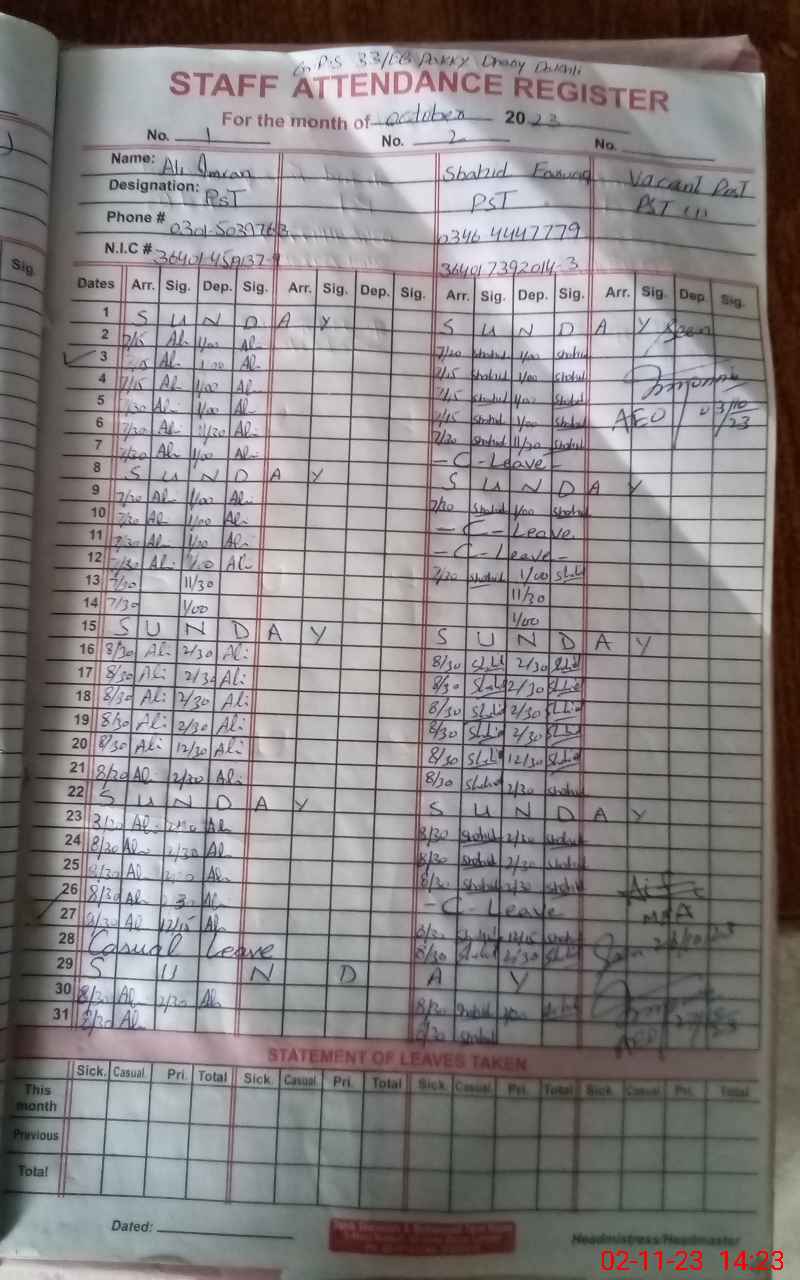 G.P.S 33/EB
STAFF ATTENDANCE REGISTER
For the month of October 2023
No. 1 No. 2 No.
Name: Ali Imran Shahid Farooq Vacant Post
Designation: PST PST PST
Phone # 0346 4447779
N.I.C #
Dates Arr. Sig. Dep. Sig. Arr. Sig. Dep. Sig. Arr. Sig. Dep. Sig. Arr. Sig. Dep. Sig.
1 S U N D A Y S U N D A Y Seen
2 7/15 Ali 1/00 Ali 7/30 Shahid 1/00 Shahid
3 Ali 1/00 Ali 7/15 Shahid 1/00 Shahid
4 7/15 Ali 1/00 Ali 7/15 Shahid 1/00 Shahid
5 7/30 Ali 1/00 Ali 7/15 Shahid 1/00 Shahid AEO 03/10/23
6 7/30 Ali 11/30 Ali 7/30 Shahid 11/30 Shahid
7 7/30 Ali 1/00 Ali - C - Leave -
8 S U N D A Y S U N D A Y
9 7/30 Ali 1/00 Ali 7/30 Shahid 1/00 Shahid
10 7/30 Ali 1/00 Ali - C - Leave
11 7/30 Ali 1/00 Ali - C - Leave -
12 7/30 Ali 1/00 Ali 7/30 Shahid 1/00 Shahid
13 7/30 11/30 11/30
14 7/30 1/00 1/00
15 S U N D A Y S U N D A Y
16 8/30 Ali 2/30 Ali 8/30 Shahid 2/30 Shahid
17 8/30 Ali 2/30 Ali 8/30 Shahid 2/30 Shahid
18 8/30 Ali 2/30 Ali 8/30 Shahid 2/30 Shahid
19 8/30 Ali 2/30 Ali 8/30 Shahid 2/30 Shahid
20 8/30 Ali 12/30 Ali 8/30 Shahid 12/30 Shahid
21 8/30 Ali 2/30 Ali 8/30 Shahid 2/30 Shahid
22 S U N D A Y S U N D A Y
23 8/30 Ali 2/30 Ali 8/30 Shahid 2/30 Shahid
24 8/30 Ali 2/30 Ali 8/30 Shahid 2/30 Shahid
25 8/30 Ali Ali 8/30 Shahid 2/30 Shahid
26 8/30 Ali Ali - C - Leave
27 8/30 Ali 12/15 Ali 8/30 Shahid 12/15 Shahid MEA
28 Casual Leave 8/30 Shahid 2/30 Shahid
29 S U N D A Y
30 8/30 Ali 2/30 Ali 8/30 Shahid Shahid
31 8/30 Ali 8/30 Shahid AEO
STATEMENT OF LEAVES TAKEN
Sick. Casual. Pri. Total Sick. Casual. Pri. Total Sick. Casual. Pri. Total Sick. Casual. Pri. Total
This month
Previous
Total
Dated:
Headmistress/Headmaster
02-11-23 14:23